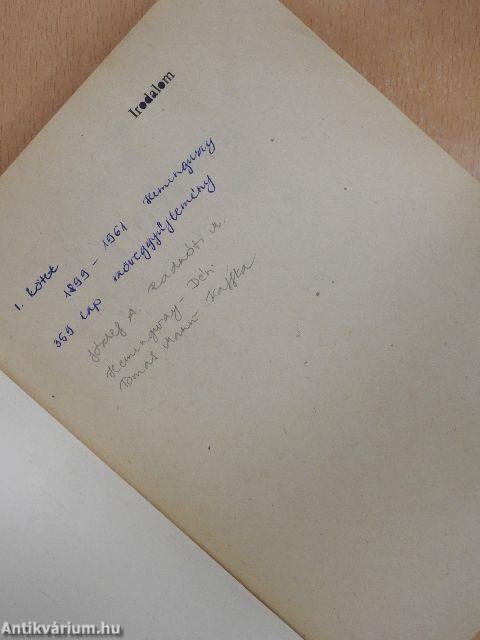 Irodalom
1. kötet
1899 - 1961 Hemingway
369 lap szöveggyűjtemény
József A. Radnóti M.
Hemingway - Déri
Tomas Mann Kafka
Antikvárium.hu